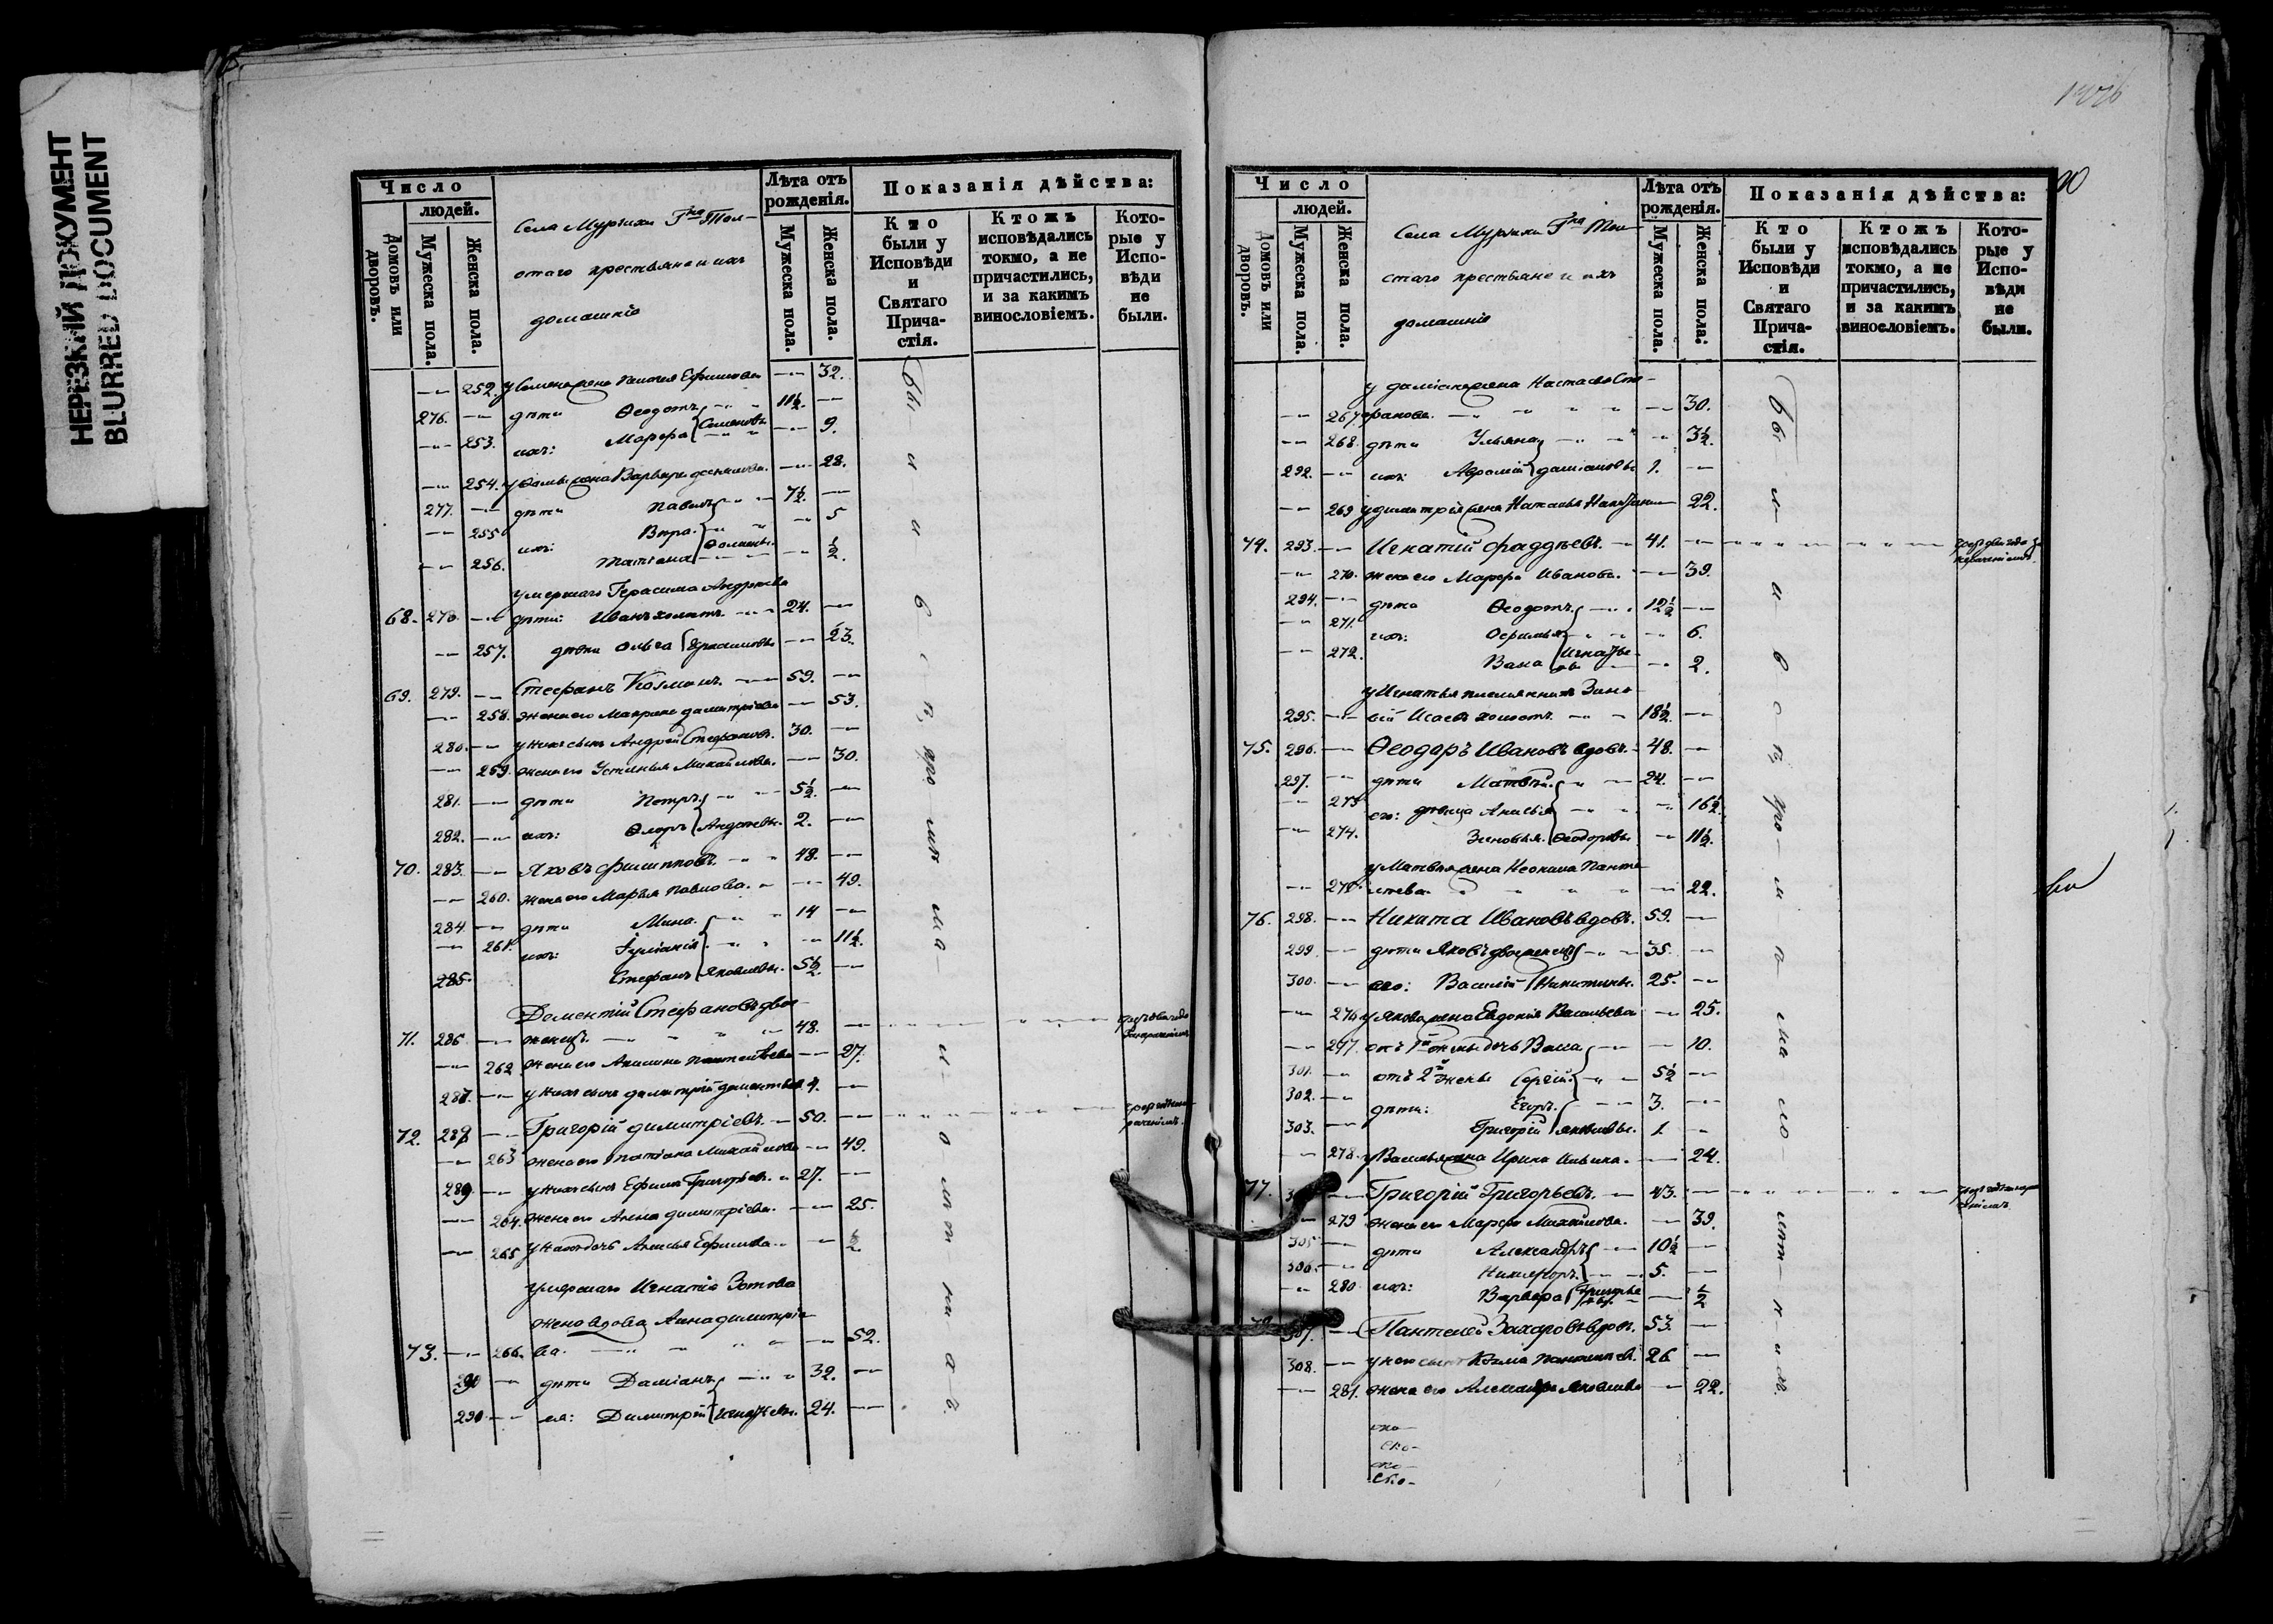 НЕРЕЗКИЙ ДОКУМЕНТ
BLURRED DOCUMENT
Число
людей.
Домовъ или дворовъ.
Мужеска пола.
Женска пола.
Села Мурзихи Гна Тол-
стаго крестьяне и ихъ
домашніе
Лѣта отъ рожденія.
Мужеска пола.
Женска пола.
Показанія дѣйства:
Кто были у Исповѣди и Святаго Прича-стія.
Ктожъ исповѣдались токмо, а не причастились, и за какимъ винословіемъ.
Кото-рые у Испо-вѣди не были.
252. у Семена жена Ефимова 32.
276. дѣти Ѳеодотъ 11½.
253. ихъ: Марѳа Семеновы 9.
254. жена Варвара 28.
277. дѣти Павелъ 7½.
255 ихъ: Вѣра 5
256. Татіана ½.
умершаго Герасима Андреева
68. 278. дѣти: Иванъ холостъ 24.
257. Ольга Герасимовы 23.
69. 279. Стефанъ Козминъ. 59.
258. жена его Марина Димитріева 53.
280. у нихъ сынъ Андрей Стефановъ. 30.
259. жена его Устинья Михайлова. 30.
281. дѣти Петръ 5½.
282. ихъ: Ѳлоръ Андреевы. 2.
70. 283. Яковъ Филипповъ. 48.
260. жена его Марья Павлова. 49.
284. дѣти Мина. 14
261. ихъ: Іуліанія 11½.
285. Стефанъ Яковлевы. 5½
Дементій Стефановъ двое-
71. 286 женецъ. 48.
262 жена его Акилина Пантелѣева 27.
287. у нихъ сынъ Димитрій Дементьевъ 4.
72. 288 Григорій Димитріевъ. 50.
263 жена его Татіана Михайлова 49.
289. у нихъ сынъ Ефимъ Григорьевъ. 27.
264. жена его Анна Димитріева. 25.
265 у нихъ дочь Анисья Ефимова ½.
умершаго Игнатія Зотова
жена вдова Анна Димитріе-
73. 266. ва. 52.
290 дѣти Даміанъ 32.
290. ея: Димитрій Игнатьевы. 24.
90
Число
людей.
Домовъ или дворовъ.
Мужеска пола.
Женска пола.
Села Мурзихи Гна Тол-
стаго крестьяне и ихъ
домашніе
Лѣта отъ рожденія.
Мужеска пола.
Женска пола.
Показанія дѣйства:
Кто были у Исповѣди и Святаго Прича-стія.
Ктожъ исповѣдались токмо, а не причастились, и за какимъ винословіемъ.
Кото-рые у Испо-вѣди не были.
у Даміана жена Настасья Сте-
267. фанова. 30.
268. дѣти Ульяна 3½.
292. ихъ: Даміановы 1.
269 у Димитрія жена Наталья 22.
74. 293. Игнатій Фаддѣевъ. 41.
270. жена его Марѳа Иванова. 39.
294. дѣти Ѳеодотъ 12½
271. ихъ: 6.
272. Васса Игнатье-вы 2.
у Игнатья племянникъ Зино-
295. вій Исаевъ холостъ. 18½.
75. 296. Ѳеодоръ Ивановъ вдовъ. 48.
297. дѣти Матвѣй 24.
273 его: дѣвица Анисья 16½.
274. Зиновья. Ѳеодоровы. 11½.
у Матвѣя жена Неонила Панте-
275 леева 22.
76. 298. Никита Ивановъ вдовъ. 59.
299 дѣти Яковъ двоеженецъ 35.
300. его: Василій Никитины. 25.
276 у Якова жена Евдокія Васильева 25.
277. отъ 1й жены дочь Васса 10.
301. отъ 2й жены Сергій 5½
302. дѣти: Егоръ. 3.
303. Григорій Яковлевы. 1.
278. у Василья жена Ирина Ильина. 24.
77. Григорій Григорьевъ. 43.
279 жена его Марѳа Михайлова. 39.
305 дѣти Александръ 10½
306. Никифоръ. 5.
280 ихъ: Варвара Григорье-вы ½
307. Пантелей Захаровъ вдовъ. 53.
308. у него сынъ Козма Пантелеевъ. 26
281. жена его Александра Яковлева 22.